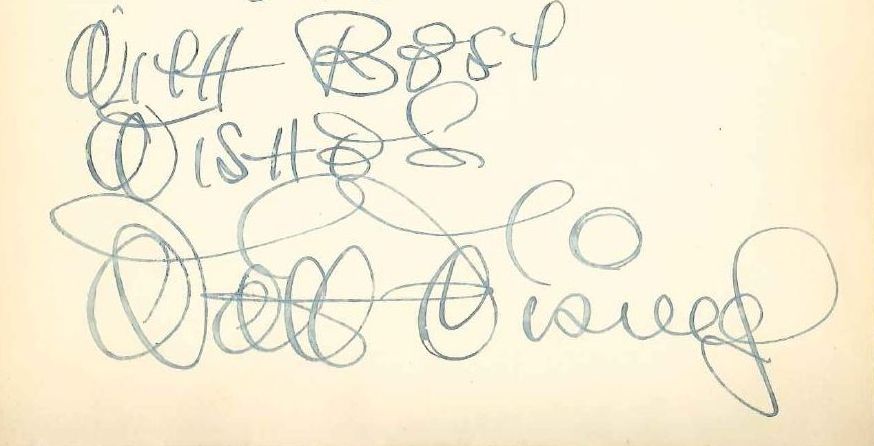 With Best
Wishes
Walt Disney